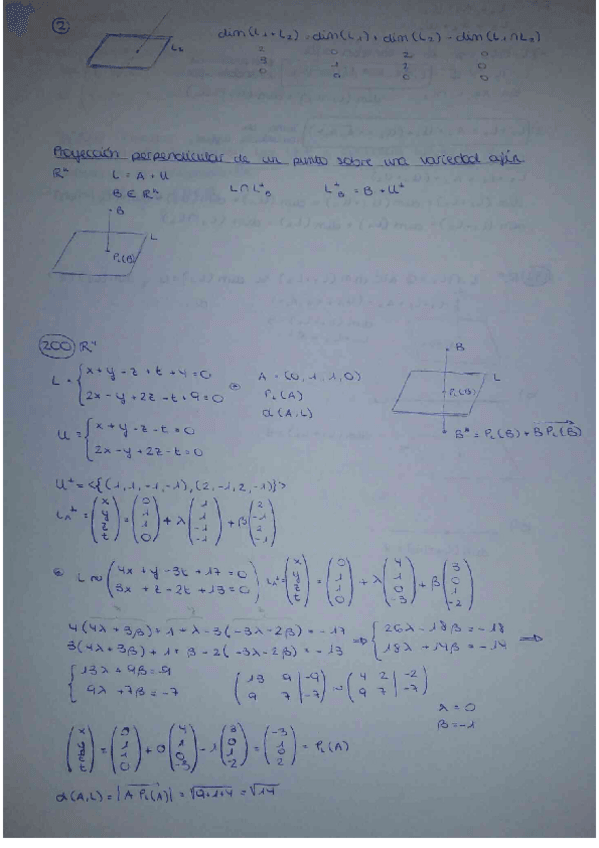 ② L₂ dim(L₁+L₂) dim(L₁) + dim(L₂) - dim(L₁∩L₂)
2 0 2 0
1 2 0
0 0 0 0
Proyección perpendicular de un punto sobre una variedad afín
Rⁿ L = A + U
B ∈ Rⁿ L ∩ L_B^⊥ L_B^⊥ = B + U^⊥
B
L
P_L(B)
200 R⁴
L = { x+y-z+t+4=0
2x-y+2z-t+9=0 A = (0,1,1,0)
P_L(A)
d(A,L)
B
L
P_L(B)
B* = P_L(B) + BP_L(B)
U = { x+y-z-t=0
2x-y+2z-t=0
U^⊥ = <{(1,1,-1,-1), (2,-1,2,-1)}>
L_A^⊥ = (x y z t) = (0 1 1 0) + λ (1 1 -1 -1) + β (2 -1 2 -1)
L ≈ (4x + y - 3t + 17 = 0
3x + z - 2t + 13 = 0) L_A^⊥ = (x y z t) = (0 1 1 0) + λ (4 1 0 -3) + β (3 0 1 -2)
4(4λ+3β) + 1 + λ - 3(-3λ-2β) = -17
3(4λ+3β) + 1 + β - 2(-3λ-2β) = -13 ⇒ { 26λ - 18β = -18
18λ + 14β = -14 ⇒
{ 13λ + 9β = -9
9λ + 7β = -7 (13 9 | -9
9 7 | -7) ~ (4 2 | -2
9 7 | -7)
λ = 0
β = -1
(x y z t) = (0 1 1 0) + 0 (4 1 0 -3) - 1 (3 0 1 -2) = (-3 1 0 2) = P_L(A)
d(A,L) = |AP_L(A)| = √9+1+4 = √14